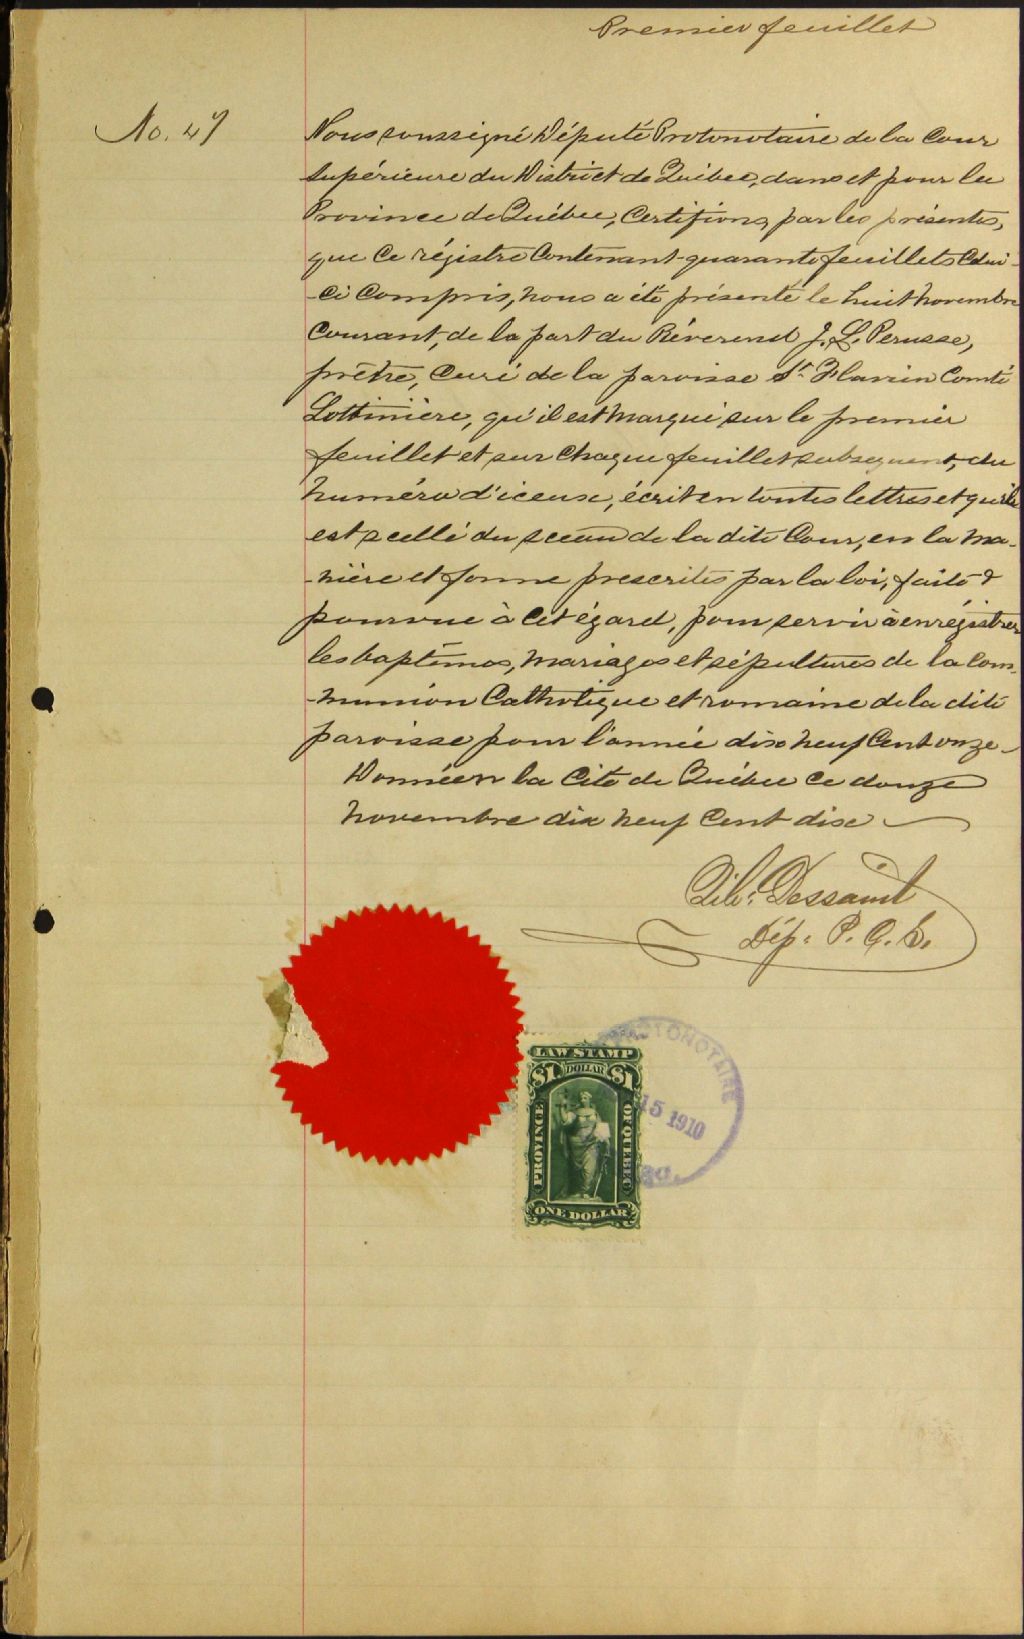 Premier feuillet
No. 47
Nous soussigné Député Protonotaire de la Cour
Supérieure du District de Québec, dans et pour la
Province de Québec, Certifions, par les présentes,
que ce régistre Contenant quarante feuillets Celui-
-Ci Compris, nous a été présenté le huit novembre
Courant, de la part du Révérend J. L. Perusse,
prêtre, Curé de la paroisse St Flavien Comté
Lotbinière, qu'il est Marqué sur le premier
feuillet et sur Chaque feuillet subsequent, du
numéro d'iceux, écrit en toutes lettres et qu'il
est scellé du sceau de la dite Cour, en la ma-
-nière et forme prescrites par la loi, faite &
pourvue à Cet égard, pour servir à enrégistrer
les baptêmes, Mariages et sépultures de la Com-
-munion Catholique et romaine de la dite
paroisse pour l'année dix neuf Cent onze
Donné en la Cité de Québec Ce douze
novembre dix neuf Cent dix
Dessaint
Dép. P. C. S.
PROTONOTAIRE
15 1910
LAW STAMP
$1 DOLLAR $1
PROVINCE OF QUEBEC
ONE DOLLAR